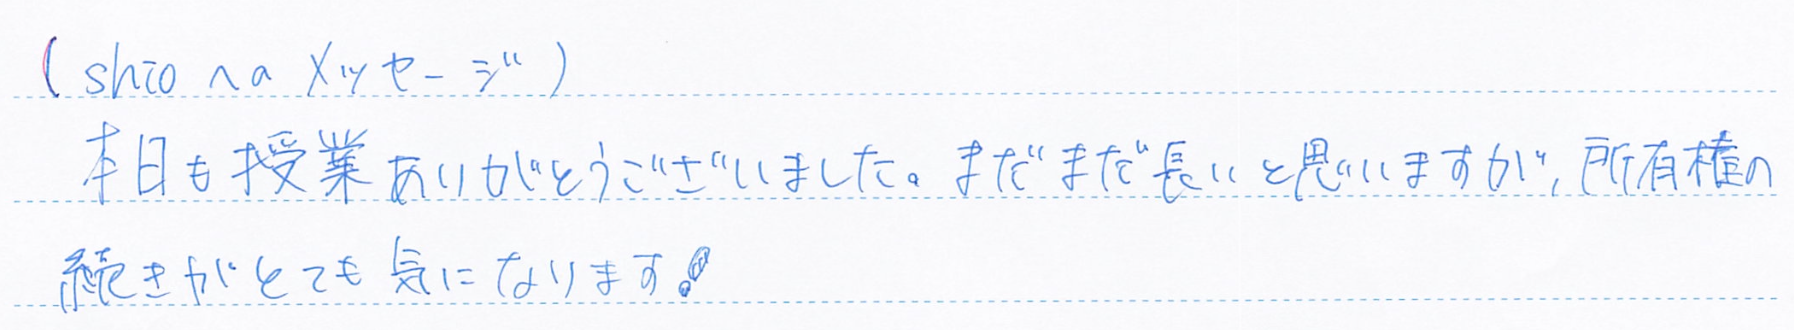 (shioへのメッセージ)
本日も授業ありがとうございました。まだまだ長いと思いますが、所有権の
続きがとても気になります!